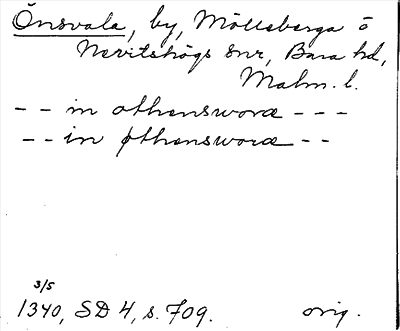 Önsvala, by, Mölleberga o
Nevitshögs snr, Bara hd,
Malm. l.
-- in othensworæ ---
-- in øthensworæ --
3/5
1340, SD 4, s. 709. orig.